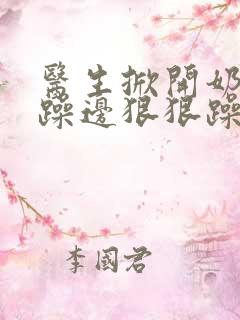 醫生掀開奶
躁邊狠狠躁
李國君